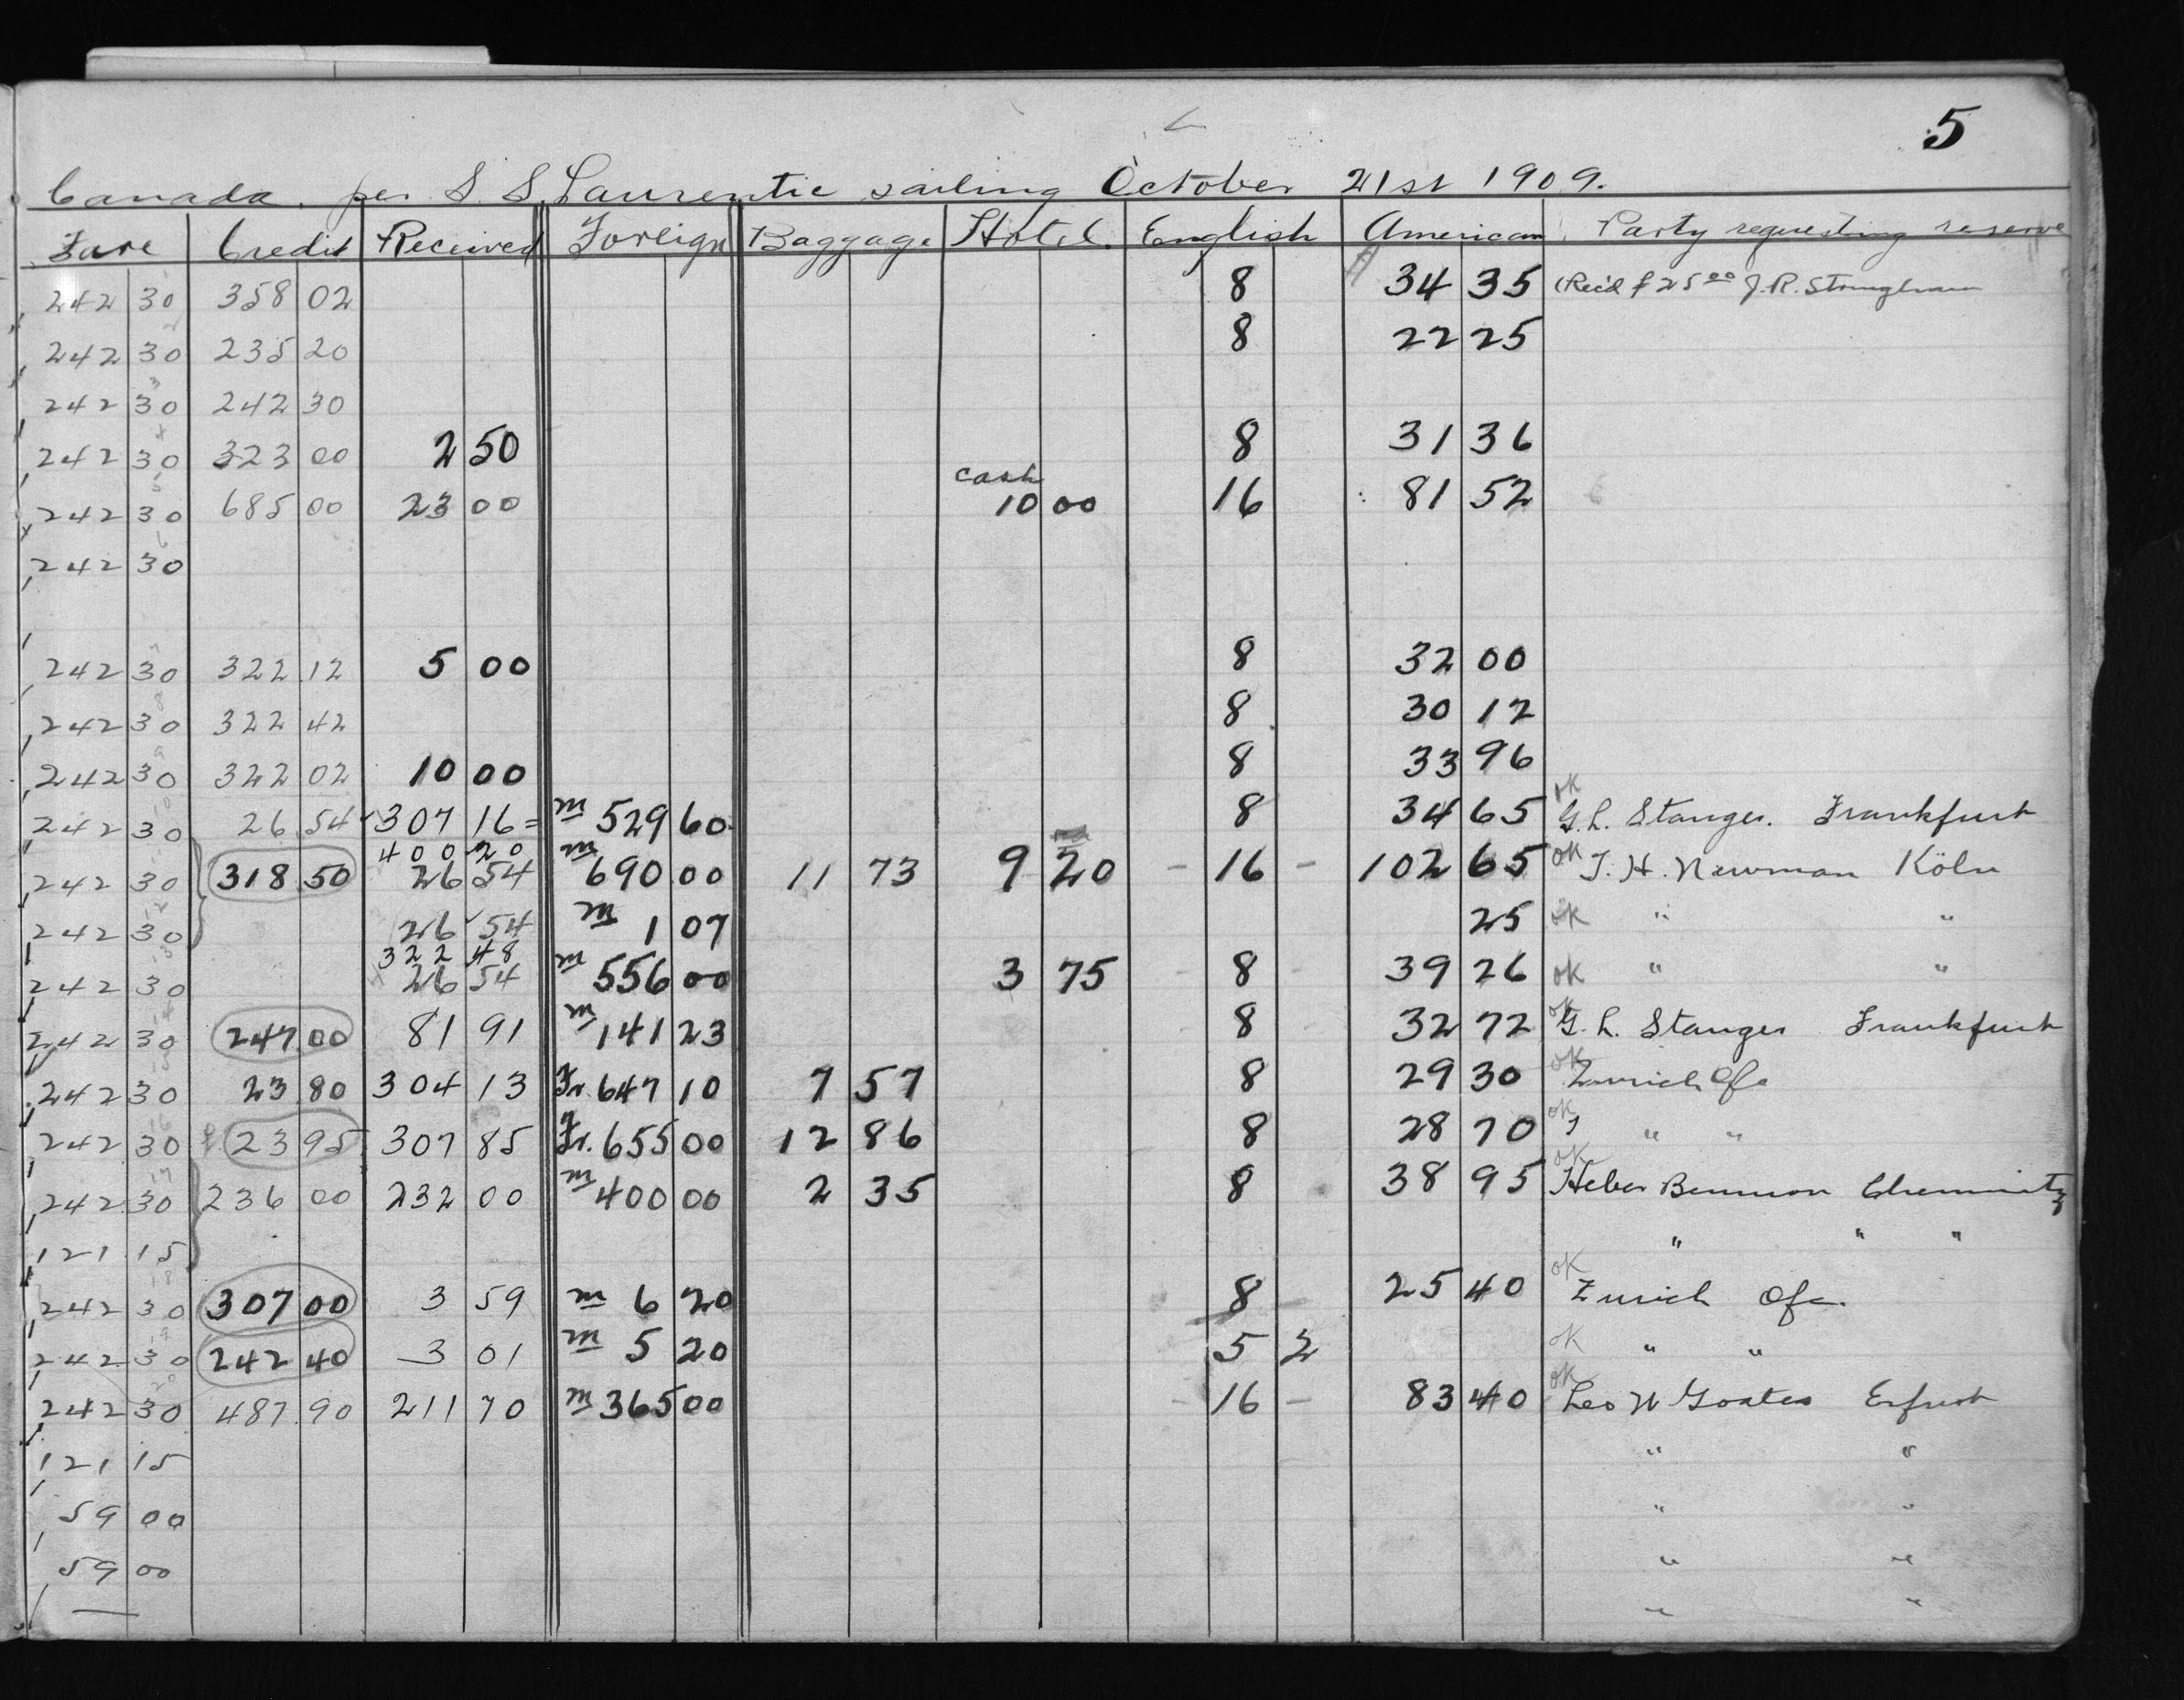 5
Canada. per S. S. Laurentic sailing October 21st 1909.
Fare Credit Received Foreign Baggage Hotel English American Party requesting reserve
242 30 358 02 8 34 35 (Rec'd $25 00 J. R. Stringham
242 30 235 20 8 22 25
242 30 242 30
242 30 323 00 2 50 8 31 36
cash
242 30 685 00 23 00 10 00 16 81 52
242 30
242 30 322 12 5 00 8 32 00
242 30 322 42 8 30 12
242 30 322 02 10 00 8 33 96
242 30 26 54 307 16 = m 529 60 8 34 65 ok G. L. Stanger. Frankfurt
400 20
242 30 318 50 26 54 m 690 00 11 73 9 20 - 16 - 102 65 ok T. H. Newman Köln
242 30 26 54 m 1 07 25 ok " "
322 48
242 30 26 54 m 556 00 3 75 - 8 - 39 26 ok " "
242 30 247 00 81 91 m 141 23 - 8 - 32 72 ok G. L. Stanger Frankfurt
242 30 23 80 304 13 Fr. 647 10 7 57 8 29 30 ok Zurich Ofc
242 30 23 95 307 85 Fr. 655 00 12 86 8 28 70 ok " "
242 30 236 00 232 00 m 400 00 2 35 8 38 95 ok Heber Bennion Chemnitz
121 15 " " "
242 30 307 00 3 59 m 6 20 8 25 40 ok Zurich Ofc.
242 30 242 40 3 01 m 5 20 5 2 ok " "
242 30 487 90 211 70 m 365 00 - 16 - 83 40 ok Leo W Goates Erfurt
121 15 " "
59 00 " "
59 00 " "
— " "